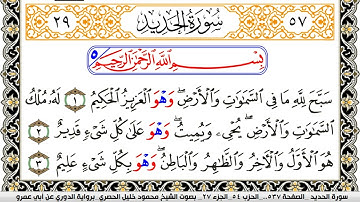 ٥٧ سُورَةُ الْحَدِيدِ ٢٩
بِسْمِ اللَّهِ الرَّحْمَٰنِ الرَّحِيمِ ٥
سَبَّحَ لِلَّهِ مَا فِي السَّمَٰوَٰتِ وَالْأَرْضِ وَهْوَ الْعَزِيزُ الْحَكِيمُ ١ لَهُ مُلْكُ
السَّمَٰوَٰتِ وَالْأَرْضِ يُحْيِۦ وَيُمِيتُ وَهْوَ عَلَىٰ كُلِّ شَيْءٍ قَدِيرٌ ٢
هُوَ الْأَوَّلُ وَالْآخِرُ وَالظَّاهِرُ وَالْبَاطِنُ وَهْوَ بِكُلِّ شَيْءٍ عَلِيمٌ ٣
سورة الحديد _ الصفحة ٥٣٧_ الحزب ٥٤ _ الجزء ٢٧ _ بصوت الشيخ محمود خليل الحصري _برواية الدوري عن أبي عمرو